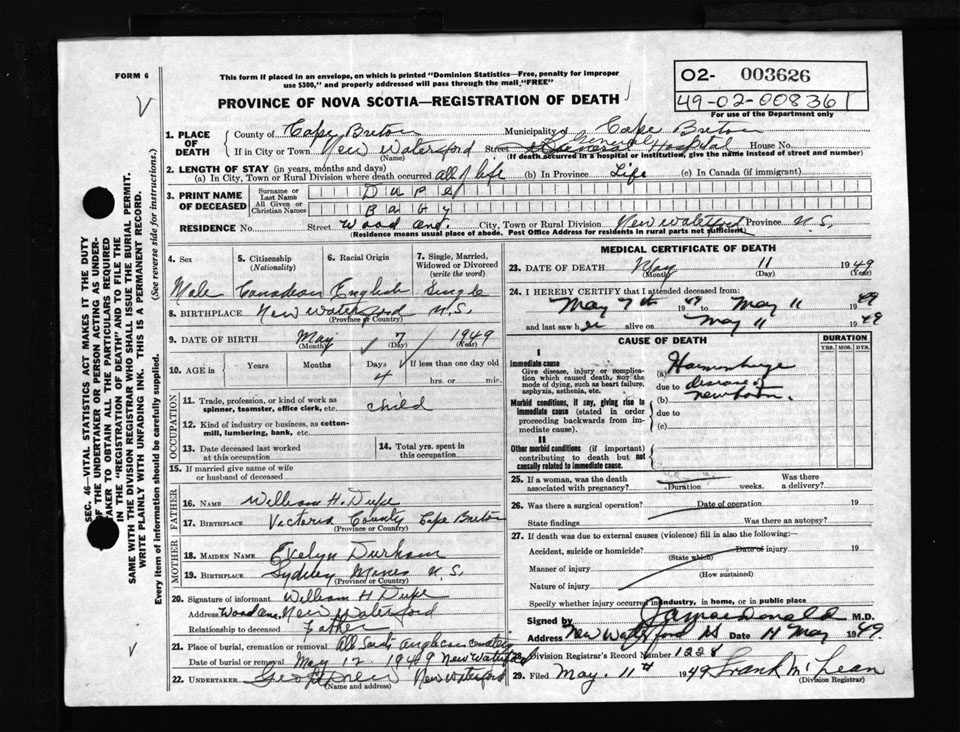 FORM 6
This form if placed in an envelope, on which is printed "Dominion Statistics—Free, penalty for improper
use $300," and properly addressed will pass through the mail "FREE"
PROVINCE OF NOVA SCOTIA—REGISTRATION OF DEATH
02- 003626
49-02-008361
For use of the Department only
SEC. 46—VITAL STATISTICS ACT MAKES IT THE DUTY
OF THE UNDERTAKER OR PERSON ACTING AS UNDER-
TAKER TO OBTAIN ALL THE PARTICULARS REQUIRED
IN THE "REGISTRATION OF DEATH" AND TO FILE THE
SAME WITH THE DIVISION REGISTRAR WHO SHALL ISSUE THE BURIAL PERMIT.
WRITE PLAINLY WITH UNFADING INK. THIS IS A PERMANENT RECORD.
Every item of information should be carefully supplied. (See reverse side for instructions.)
1. PLACE OF DEATH County of Cape Breton Municipality of Cape Breton
If in City or Town New Waterford Street General Hospital House No.
(Name) (If death occurred in a hospital or institution, give the name instead of street and number)
2. LENGTH OF STAY (in years, months and days)
(a) In City, Town or Rural Division where death occurred all of life (b) In Province Life (c) In Canada (if immigrant)
3. PRINT NAME OF DECEASED
Surname or Last Name Dupe
All Given or Christian Names Baby
RESIDENCE No. Street Wood ave. City, Town or Rural Division New Waterford Province N.S.
(Residence means usual place of abode. Post Office Address for residents in rural parts not sufficient.)
4. Sex 5. Citizenship (Nationality) 6. Racial Origin 7. Single, Married, Widowed or Divorced (write the word)
Male Canadian English Single
8. BIRTHPLACE New Waterford N.S.
(Province or Country)
9. DATE OF BIRTH May 7 1949
(Month) (Day) (Year)
10. AGE in Years Months Days If less than one day old
4 hrs. or min.
OCCUPATION
11. Trade, profession, or kind of work as
spinner, teamster, office clerk, etc. child
12. Kind of industry or business, as cotton-
mill, lumbering, bank, etc.
13. Date deceased last worked at this occupation
14. Total yrs. spent in this occupation
15. If married give name of wife
or husband of deceased
FATHER
16. NAME William H. Dupe
17. BIRTHPLACE Victoria County Cape Breton
(Province or Country)
MOTHER
18. MAIDEN NAME Evelyn Durham
19. BIRTHPLACE Sydney Mines N.S.
(Province or Country)
20. Signature of informant William H Dupe
Address Wood ave New Waterford
Relationship to deceased Father
21. Place of burial, cremation or removal All Saints Anglican Cemetery
Date of burial or removal May 12 1949 New Waterford
22. UNDERTAKER New Waterford
(Name and address)
MEDICAL CERTIFICATE OF DEATH
23. DATE OF DEATH May 11 1949
(Month) (Day) (Year)
24. I HEREBY CERTIFY that I attended deceased from:
May 7th 1949 to May 11 1949
and last saw h alive on May 11 1949
CAUSE OF DEATH DURATION
YRS. MOS. DYS.
I
Immediate cause
Give disease, injury or complica-
tion which caused death, not the
mode of dying, such as heart failure,
asphyxia, asthenia, etc.
(a) Haemorrhage
due to disease of
(b) newborn.
Morbid conditions, if any, giving rise to
immediate cause (stated in order
proceeding backwards from im-
mediate cause).
due to
(c)
II
Other morbid conditions (if important)
contributing to death but not
causally related to immediate cause.
25. If a woman, was the death
associated with pregnancy? Duration weeks. Was there
a delivery?
26. Was there a surgical operation? Date of operation 19
State findings Was there an autopsy?
27. If death was due to external causes (violence) fill in also the following:
Accident, suicide or homicide? Date of injury 19
(State which)
Manner of injury
(How sustained)
Nature of injury
Specify whether injury occurred in industry, in home, or in public place
Signed by M.D.
Address New Waterford NS Date 11 May 1949.
28. Division Registrar's Record Number 1228
29. Filed May. 11th 1949 Frank McLean
(Division Registrar)